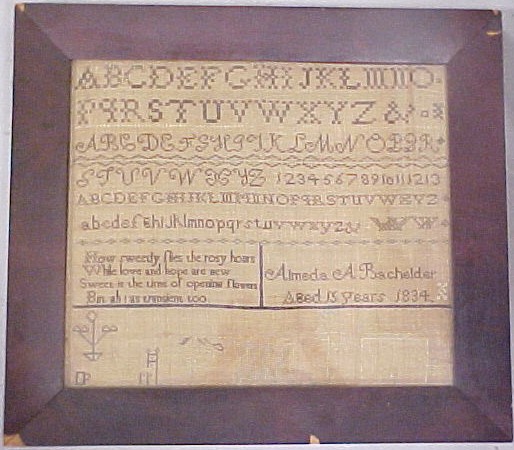 ABCDEFGHIJKLMNO
PQRSTUVWXYZ&
ABCDEFGHIJKLMNOPQR
STUVWXYZ 12345678910111213
ABCDEFGHIJKLMNOPQRSTUVWXYZ
abcdefghijklmnopqrstuvwxyz& W W
How sweetly flies the rosy hours
While love and hope are new
Sweet is the time of opening flowers
But ah tis transient too
Almeda A Bachelder
Aged 15 years 1834